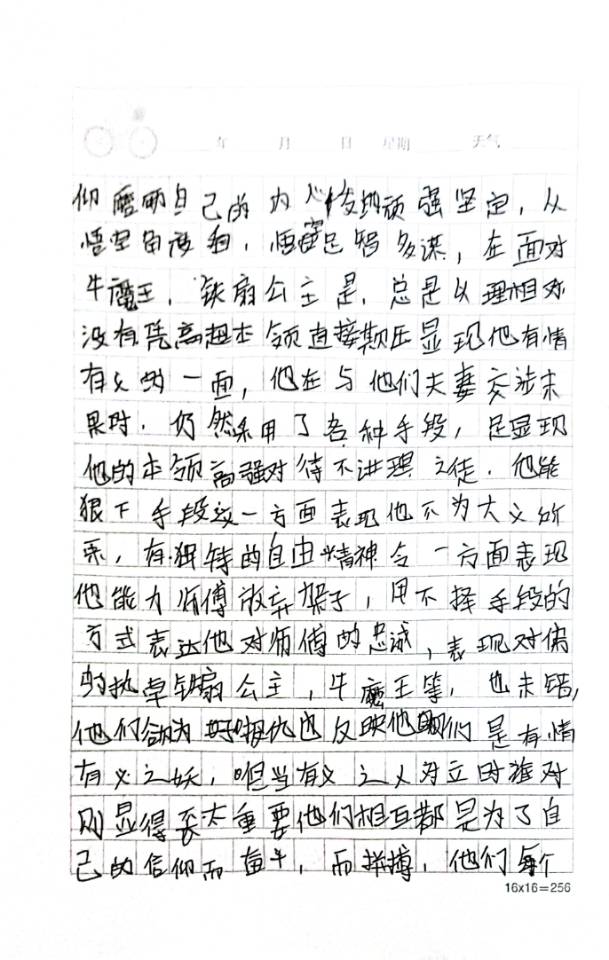 年 月 日 星期 天气
仰磨两自己的内心使她顽强坚定，从
悟空角度看，悟空足智多谋，在面对
牛魔王，铁扇公主是，总是以理相对
没有凭高超本领直接欺压显现他有情
有义的一面，他在与他们夫妻交涉未
果时．仍然采用了各种手段，足显现
他的本领高强对待不讲理之徒．他能
狠下手段这一方面表现他不为大义所
系，有独特的自由精神令一方面表现
他能为师傅放弃架子，用不择手段的
方式表达他对师傅的忠诚，表现对佛
的执卓铁扇公主，牛魔王等，也未错，
他们欲为好报仇也反映他们是有情
有义之妖，但当有义之人对立时谁对
则显得不太重要他们相互都是为了自
己的信仰而奋斗，而拼搏，他们每个
16x16=256